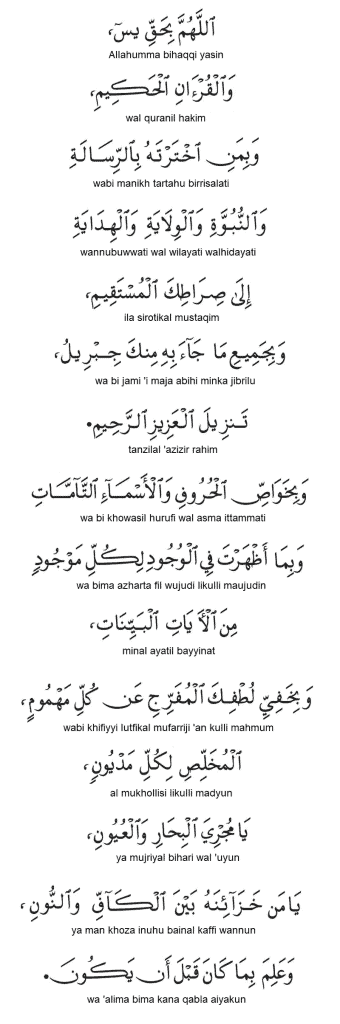 اَللَّهُمَّ بِحَقِّ يسٓ،
Allahumma bihaqqi yasin
وَالْقُرْءَانِ الْحَكِيمِ،
wal quranil hakim
وَبِمَنِ اخْتَرْتَهُ بِالرِّسَالَةِ
wabi manikh tartahu birrisalati
وَالنُّبُوَّةِ وَالْوِلَايَةِ وَالْهِدَايَةِ
wannubuwwati wal wilayati walhidayati
إِلَى صِرَاطِكَ الْمُسْتَقِيمِ،
ila sirotikal mustaqim
وَبِجَمِيعِ مَا جَآءَ بِهِ مِنكَ جِبْرِيلُ،
wa bi jami 'i maja abihi minka jibrilu
تَنزِيلَ الْعَزِيزِ الرَّحِيمِ.
tanzilal 'azizir rahim
وَبِخَوَاصِّ الْحُرُوفِ وَالْأَسْمَآءِ التَّآمَّاتِ
wa bi khowasil hurufi wal asma ittammati
وَبِمَا أَظْهَرْتَ فِي الْوُجُودِ لِكُلِّ مَوْجُودٍ
wa bima azharta fil wujudi likulli maujudin
مِنَ الْأَيَاتِ الْبَيِّنَاتِ،
minal ayatil bayyinat
وَبِخَفِيِّ لُطْفِكَ الْمُفَرِّجِ عَن كُلِّ مَهْمُومٍ،
wabi khifiyyi lutfikal mufarriji 'an kulli mahmum
الْمُخَلِّصِ لِكُلِّ مَدْيُونٍ،
al mukhollisi likulli madyun
يَا مُجْرِيَ الْبِحَارِ وَالْعُيُونِ،
ya mujriyal bihari wal 'uyun
يَا مَن خَزَآئِنُهُ بَيْنَ الْكَافِّ وَالنُّونِ،
ya man khoza inuhu bainal kaffi wannun
وَعَلِمَ بِمَا كَانَ قَبْلَ أَن يَكُونَ.
wa 'alima bima kana qabla aiyakun